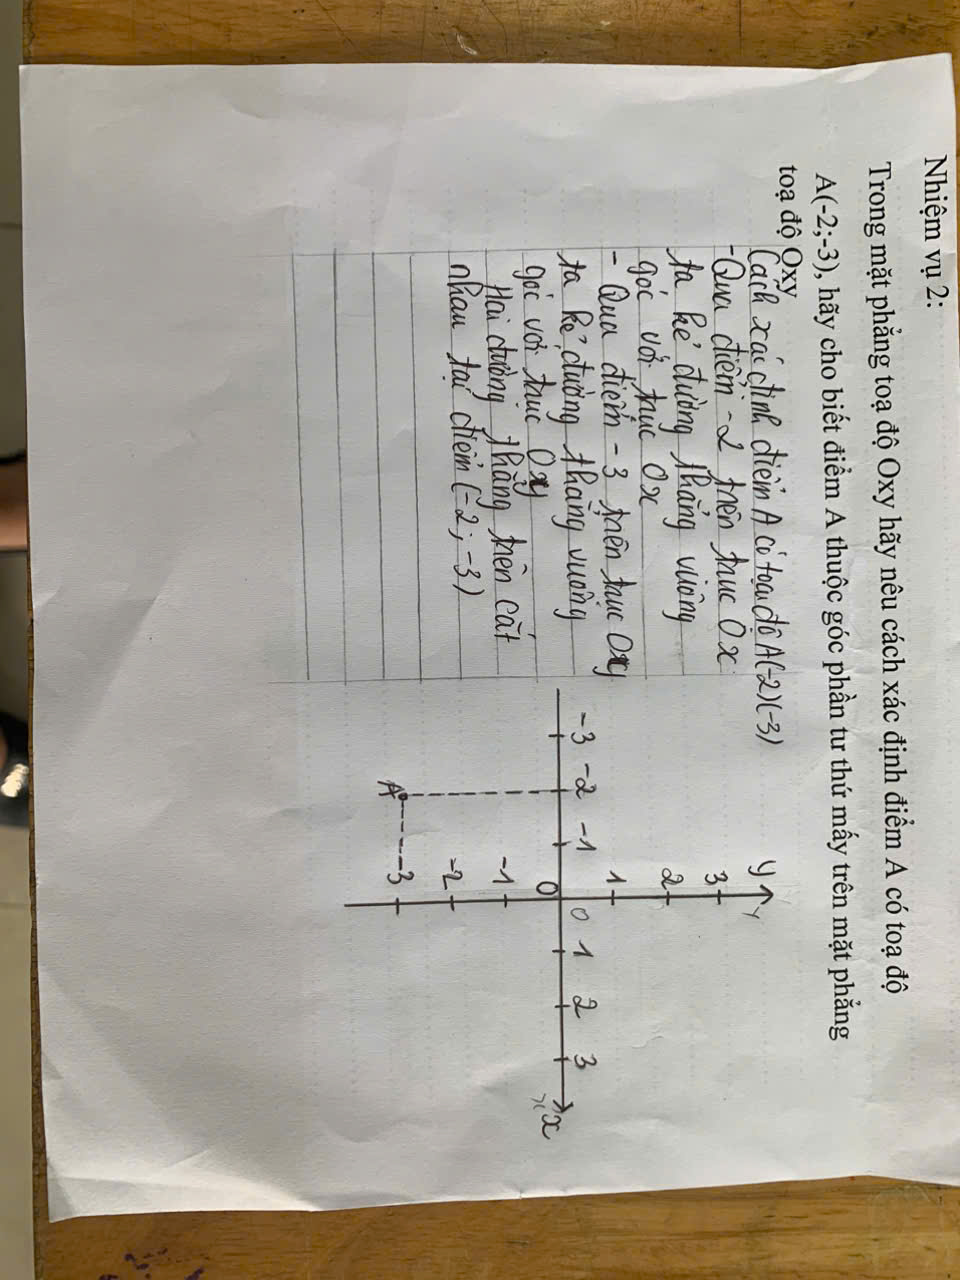 Nhiệm vụ 2:
Trong mặt phẳng toạ độ Oxy hãy nêu cách xác định điểm A có toạ độ
A(-2;-3), hãy cho biết điểm A thuộc góc phần tư thứ mấy trên mặt phẳng
toạ độ Oxy
Cách xác định điểm A có tọa độ A(-2)(-3)
-Qua điểm -2 trên trục Ox
ta kẻ đường thẳng vuông
góc với trục Ox
- Qua điểm -3 trên trục Oxy
ta kẻ đường thẳng vuông
góc với trục Oxy
Hai đường thẳng trên cắt
nhau tại điểm (-2; -3)
y
3
2
1
-3 -2 -1 0 1 2 3 x
0
-1
-2
A -3